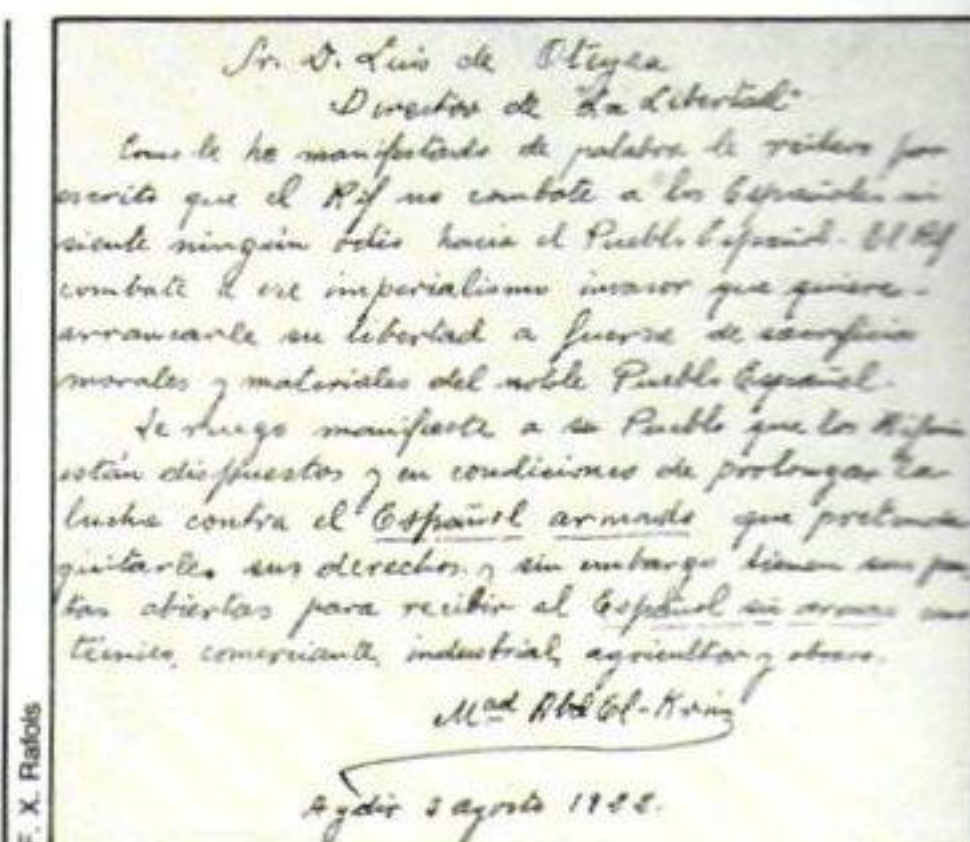 Sr. D. Luis de Oteyza
Director de "La Libertad"
Como le he manifestado de palabra le reitero por
escrito que el Rif no combate a los Españoles ni
siente ningún odio hacia el Pueblo Español. El Rif
combate a ese imperialismo invasor que quiere
arrancarle su libertad a fuerza de sacrificios
morales y materiales del noble Pueblo Español.
Le ruego manifieste a su Pueblo que los Rifeños
están dispuestos y en condiciones de prolongar la
lucha contra el Español armado que pretenda
quitarles sus derechos, y sin embargo tienen sus puer
tas abiertas para recibir al Español sin armas como
técnico, comerciante, industrial, agricultor y obrero.
Mad Abd El-Krim
Aydir agosto 1922.
F. X. Rafols